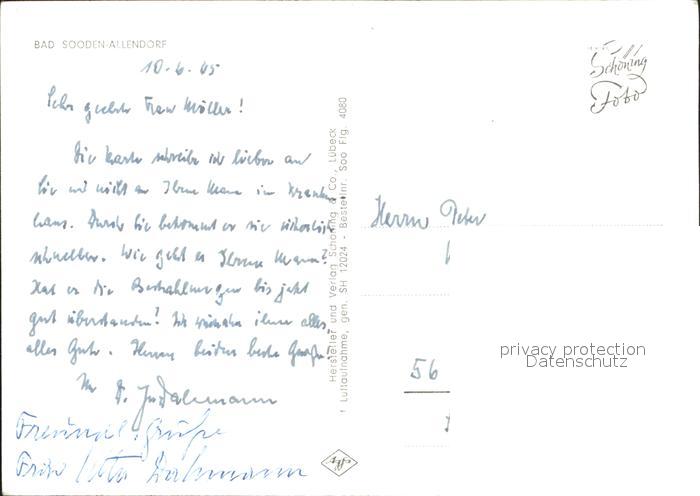 BAD SOODEN-ALLENDORF
10.6.65
Sehr geehrte Frau Möller!
Die Karte schreibe ich lieber an
Sie und nicht an Ihren Mann im Kranken-
haus. Durch Sie bekommt er sie sicherlich
schneller. Wie geht es Ihrem Mann?
Hat er die Bestrahlungen bis jetzt
gut überstanden? Wir wünschen ihm alles,
alles Gute. Ihnen beiden beste Grüße
Ihr Dahmann
Freundl. Grüße
Frau Dahmann
Hersteller und Verlag Schöning & Co., Lübeck
Luftaufnahme, gen. SH 12024 - Bestellnr. Soo Flg. 4080
Schöning
Foto
Herrn Peter
56
privacy protection
Datenschutz